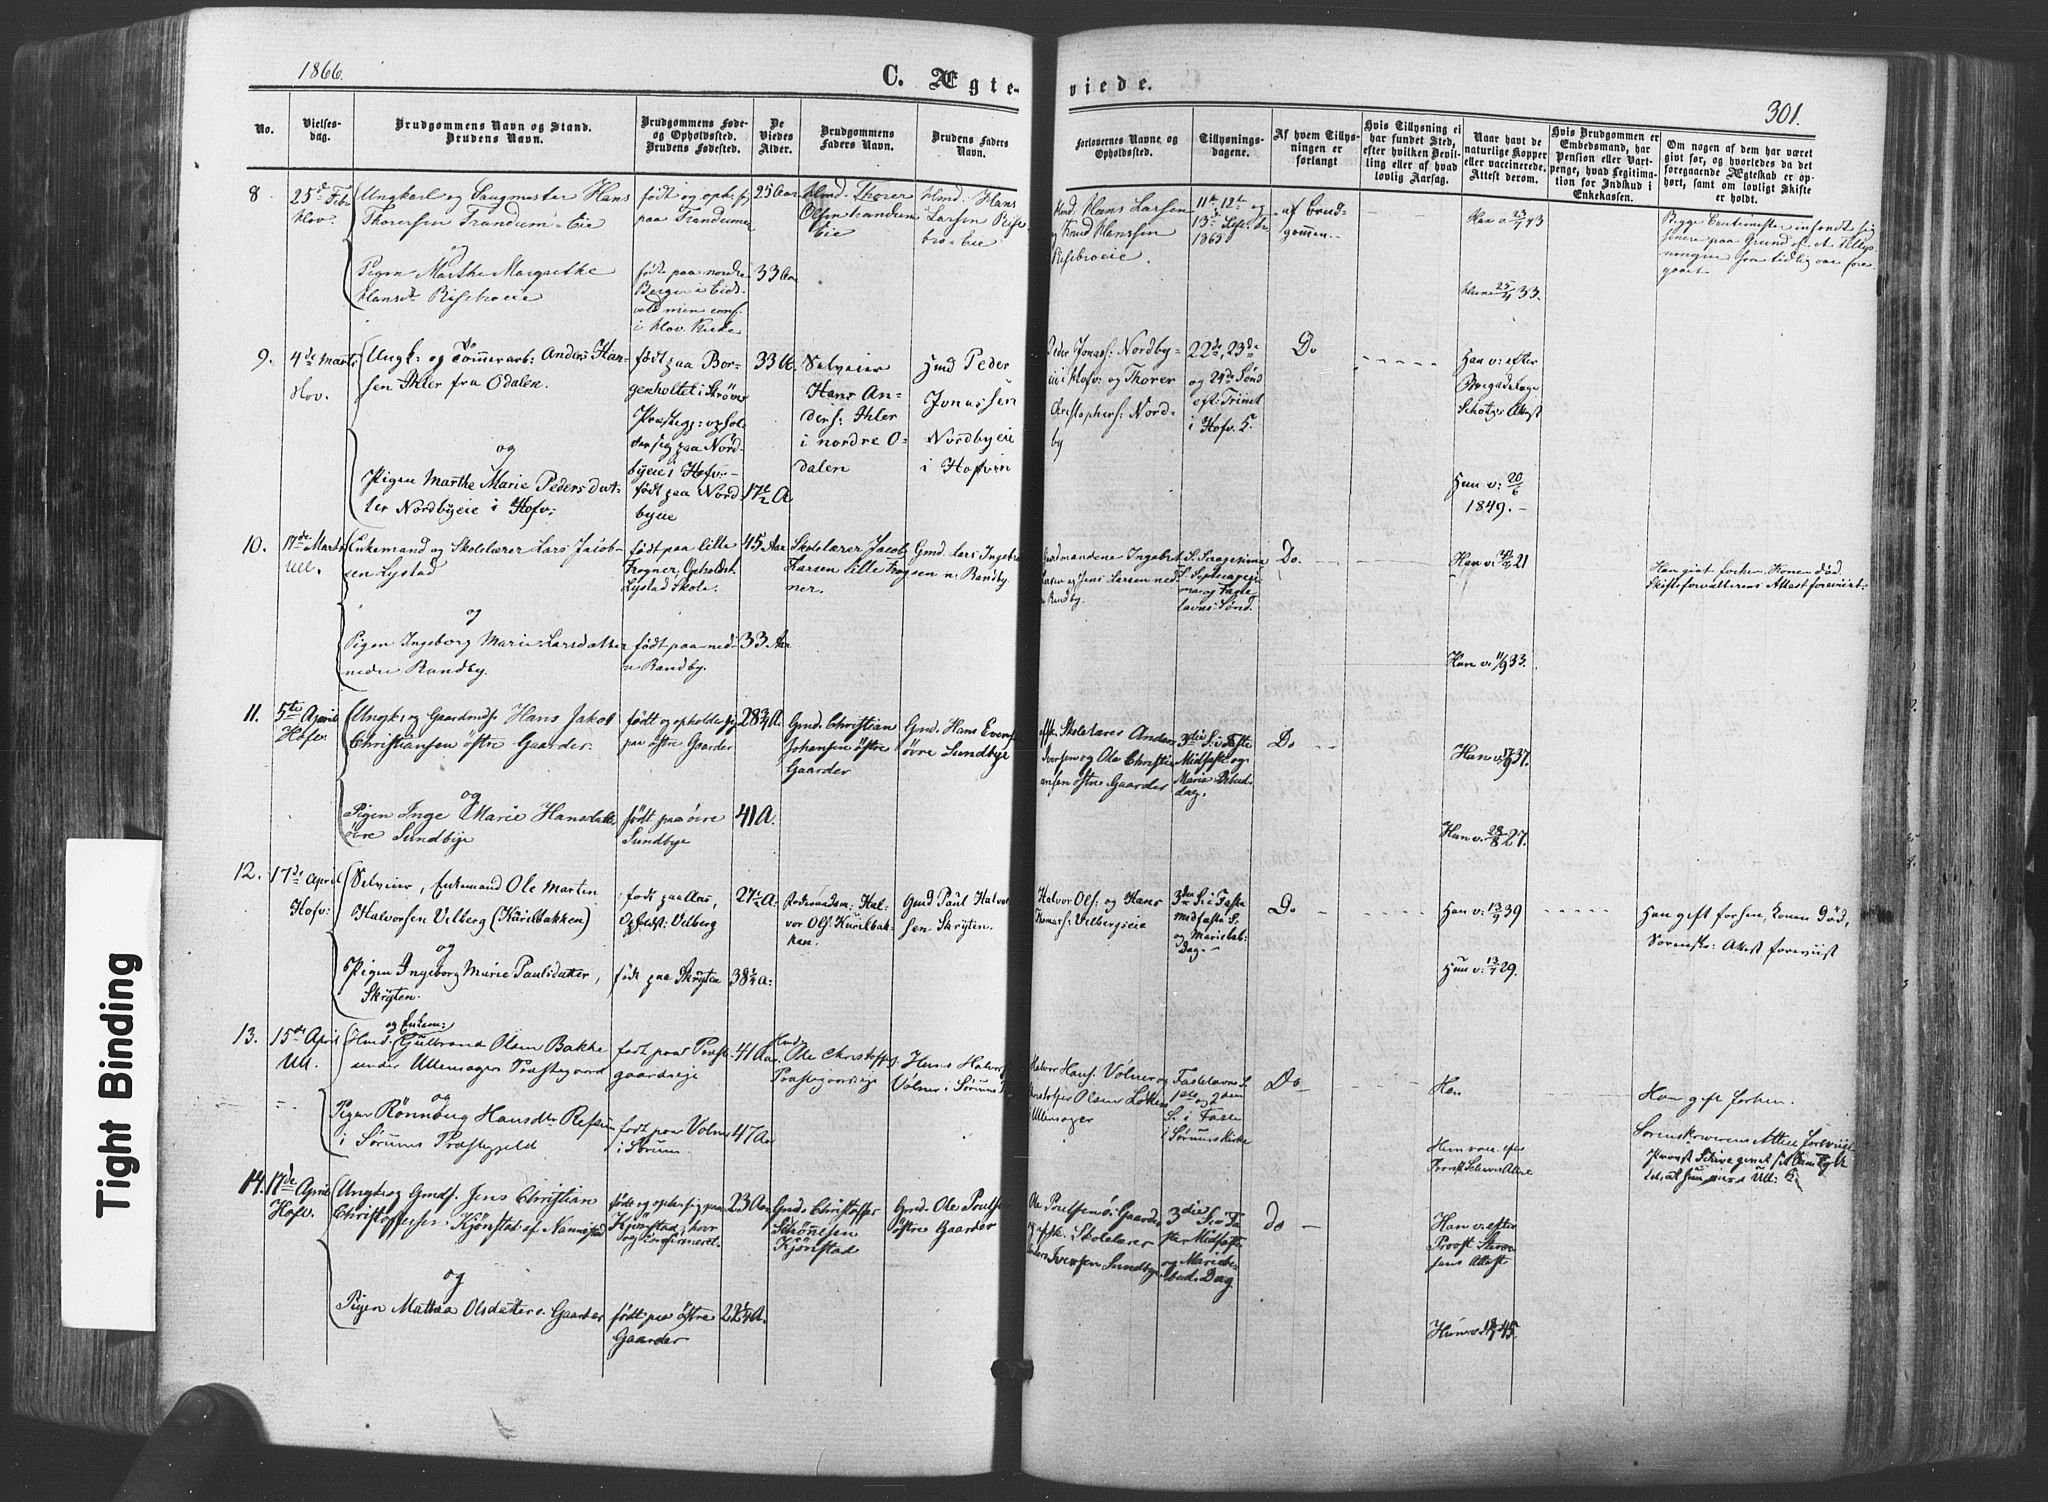 1866.
C. Ægte-
viede.
301.
No.
Vielses-
dag.
Brudgommens Navn og Stand.
Brudens Navn.
Brudgommens Føde-
og Opholdssted.
Brudens Fødested.
De
Viedes
Alder.
Brudgommens
Faders Navn.
Brudens Faders
Navn.
Forlovernes Navne og
Opholdssted.
Tillysnings-
dagene.
Af hvem Tillys-
ningen er
forlangt
Hvis Tillysning ei
har fundet Sted,
efter hvilken Bevil-
ling eller af hvad
lovlig Aarsag.
Naar havt de
naturlige Kopper
eller vaccinerede.
Attest derom.
Hvis Brudgommen er
Embedsmand, har
Pension eller Vart-
penge, hvad Legitima-
tion for Indskud i
Enkekassen.
Om nogen af dem har været
gift før, og hvorledes da det
foregaaende Ægteskab er op-
hørt, samt om lovligt Skifte
er holdt.
8
25de Febr
Hov.
Ungkarl og Saugmester Hans
Thorersen Trandum-Eie
og
Pigen Marthe Margrethe
Hansdr Risebroeie
født og
paa Trandumeie
født paa nordre
Berger i Eids-
vold men conf.
i Hov. Kirke
25 Aar
33 Aar
Hmd. Thorer
Olsen Trandum
Eie
Hmd. Hans
Larsen Rise
bro-Eie
Hmd. Hans Larsen
og Knud Hanssen
Risebroeie.
11te, 12te og
13de
1865
af Brud-
gommen..
Han v 23/7 43
Hun 25/4 33.
Begge
senere paa Grund af at Tillys
ningen fra tidlig var fore-
gaaet
9.
4de Marts
Hov.
Ungk: og Tømmerarb: Anders Han-
sen Ihler fra Odalen.
og
Pigen Marthe Marie Pedersdat-
ter Nordbyeie i Hofv:
født paa Bor-
genholtet i Strøm
Præstegj: og
sig paa Nord-
byeie i Hofv-
født paa Nord-
byeie
33 A.
17 1/2 A
Selveier
Hans An-
ders: Ihler
i nordre O-
dalen
Hmd Peder
Jonassen
Nordbyeie
i Hofvin
Peder Jonass: Nordby-
eie i Hofv: og Thorer
Christophers: Nord-
by
22de, 23de
og 24de Sønd
eft: Trinit
i Hofv. 5.
Do
Han v: efter
Attest
Hun v: 20/6
1849. -
10.
17de Marts
Ull.
Enkemand og Skolelærer Lars Jacob-
sen Lystad
og
Pigen Ingeborg Marie Larsdatter
nedre Randby.
født paa lille
Frogner, Opholdst.
Lystad Skole.
født paa ned-
re Randby.
45 Aar
33 Aar
Skolelærer Jacob
Larsen lille Frog-
ner.
Gmd. Lars Ingebret
sen n: Randby.
Gaardmændene Ingebret
Larsen og Jens Larsen ned
re Randby.
S. Sexagesima
S. Septuagesi
ma og Faste-
lavns: Sønd.
Do.
Han v. 21
Hun v: 11/9 33.
Han gift forhen. Konen død.
Skifteforvalterens Attest foreviist:
11.
5te April
Hofv:
Ungk: og Gaardmds: Hans Jakob
Christiansen østre Gaarder.
og
Pigen Inge Marie Hansdatter
øvre Sundbye
født og opholder sig
paa østre Gaarder
født paa øvre
Sundbye
28 3/4 A.
41 A.
Gmd. Christian
Johansen østre
Gaarder
Gmd. Hans Evens.
øvre Sundbye
afsk. Skolelærer Anders
Iversen og Ole Christi
ansen østre Gaarder
3die S: i Faste
Midfaste og
Marie Bebud.
dag.
Do
Han v: 17/9 37.
Hun v. 28/8 27.
12.
17de April
Hofv:
Selveier, Enkemand Ole Marten
Halvorsen Vilberg (Kurilbakken)
og
Pigen Ingeborg Marie Paulsdatter,
Skryten.
født paa Aas,
Opholdst: Vilberg
født paa Skryten
27 1/2 A.
38 1/2 A:
Hal-
vor Ols. Kurilbak-
ken.
Gmd Paul Halvor
sen Skryten.
Halvor Ols: og Hans
Thomass: Vilbergseie
3die S: i Faste
midfaste S:
og Mariæ
Dag. -
Do
Han v: 13/9 39
Hun v: 13/7 29.
Han gift forhen, Konen død,
Sorenskr: Attest foreviist
13.
15de April
Ull.
og Enkem:
Hmd. Gulbrand Olsen Bakke
under Ullensager Præstegaard
og
Pigen Rønnberg Hansdtr
i Sørums Præstegjeld
født paa Præste-
gaardseje
født paa Volner
i Sørum.
41 Aar
47 Aar
Hmd.
Ole Christoffs.
Præstegaardseje
Hans Halvors
Volner i Sørums
Halvor Hans: Volner og
Olsen
i Ullensager
Fastelavns S.
1ste og 2den
S. i Faste
i Sørums Kirke
Do
Han
Hun vac. efter
Provst Schives Attest
Han gift forhen.
Sorenskriverens Attest foreviist
Provst Schive givet sit Samtykke
til, at hun vies i Ull: K.
14.
17de April
Hofv.
Ungk: og Gmds. Jens Christian
Christoffersen Kjønstad af Nannestad
og
Pigen Mathea Olsdatter ø. Gaarder
født og opholder sig paa
Kjønstad, hvor
og Confirmeret.
født paa østre
Gaarder
23 Aar
22 1/4 A.
Gmd: Christoffer
Kjønstad
Gmd. Ole Poulsen
østre Gaarder
Ole Poulsen ø: Gaarder
og afsk. Skolelærer
Anders Iversen Sundbye.
3die S: i Fa-
ste, Midfaste
og Mariæbe-
bud: Dag
do
Han v: efter
Provst
Attest
Hun v. 45.
Tight Binding